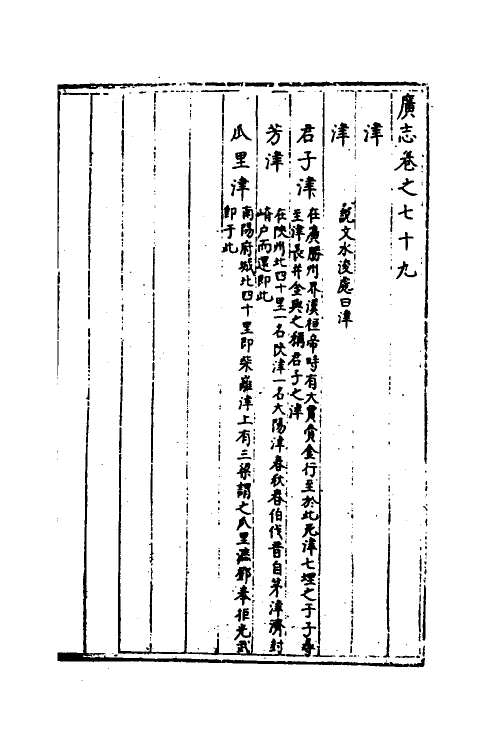 廣志卷之七十九
津
津
說文水浚處曰津
君子津
在廣勝州界漢桓帝時有大賈賫金行至於此死津七埋之于子尋
至津長井全與之稱君子之津
芳津
在陜州北四十里一名陜津一名大陽津春秋春伯伐晋自茅津濟封
崤户而還即此
瓜里津
南陽府城北四十里即柴雍津上有三梁謂之瓜里 鄧奉拒光武
即于此